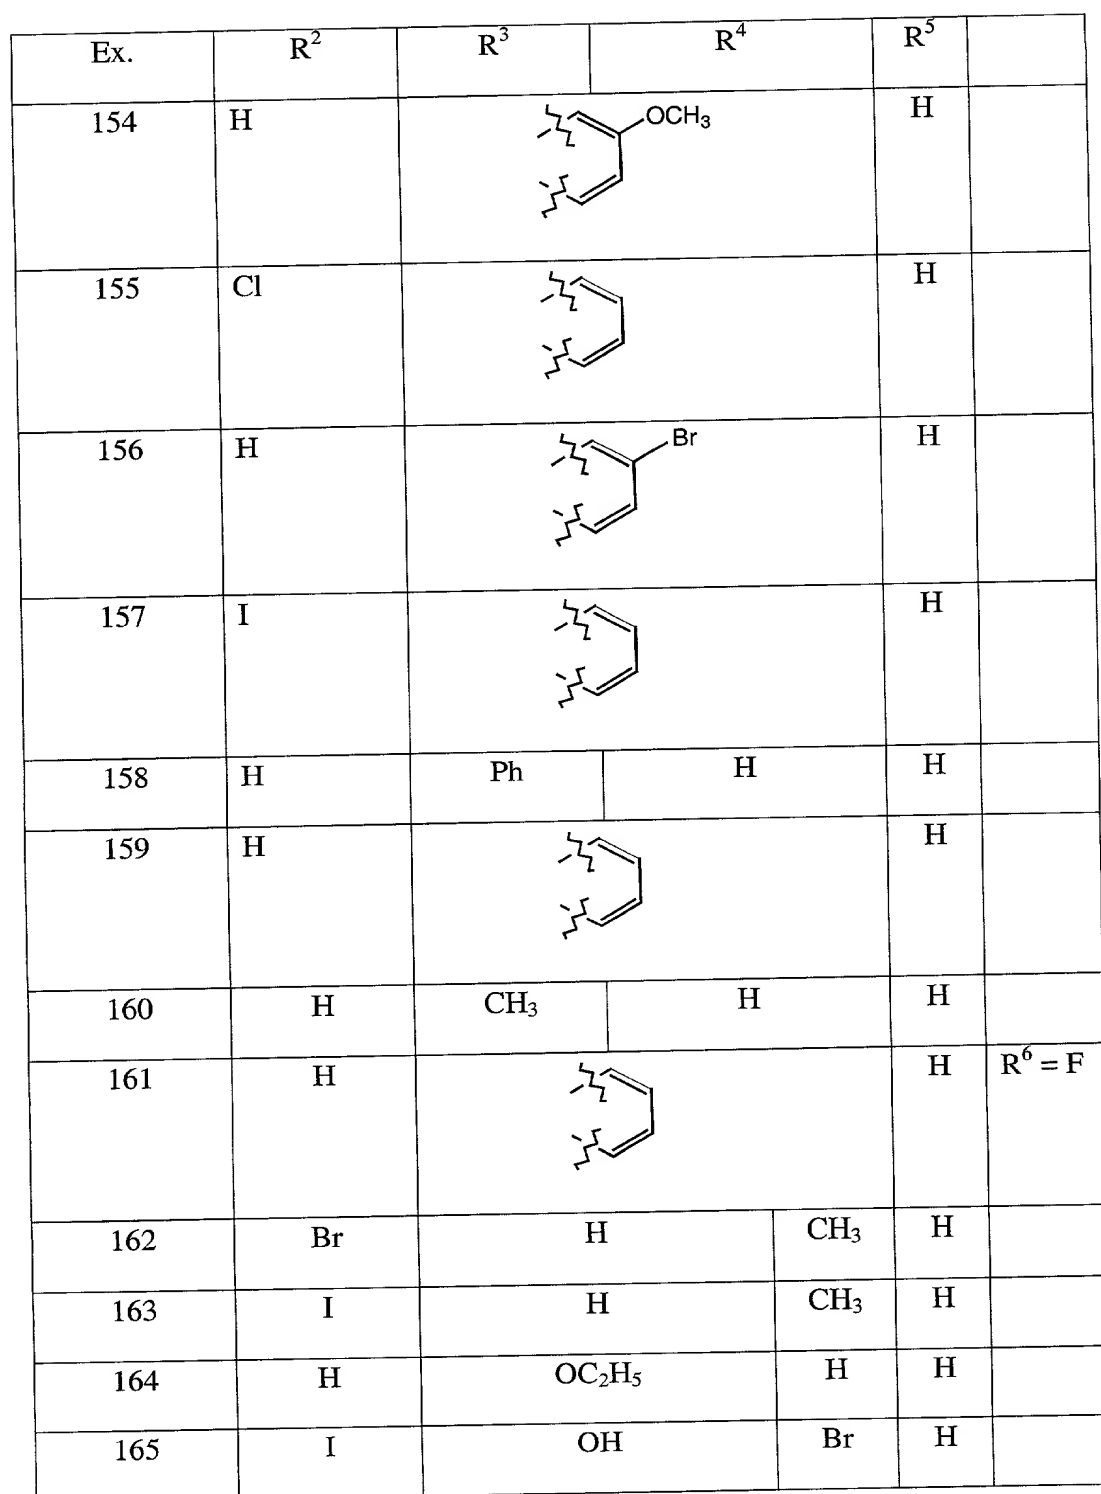 Ex. R² R³ R⁴ R⁵
154 H OCH₃ H
155 Cl H
156 H Br H
157 I H
158 H Ph H H
159 H H
160 H CH₃ H H
161 H H R⁶ = F
162 Br H CH₃ H
163 I H CH₃ H
164 H OC₂H₅ H H
165 I OH Br H